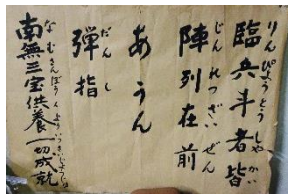 臨兵斗者皆
りんぴょうとうしゃかい
陣列在前
じんれつざいぜん
あうん
弾指
だんし
南無三宝供養一切成就
なむさんぼうくよう